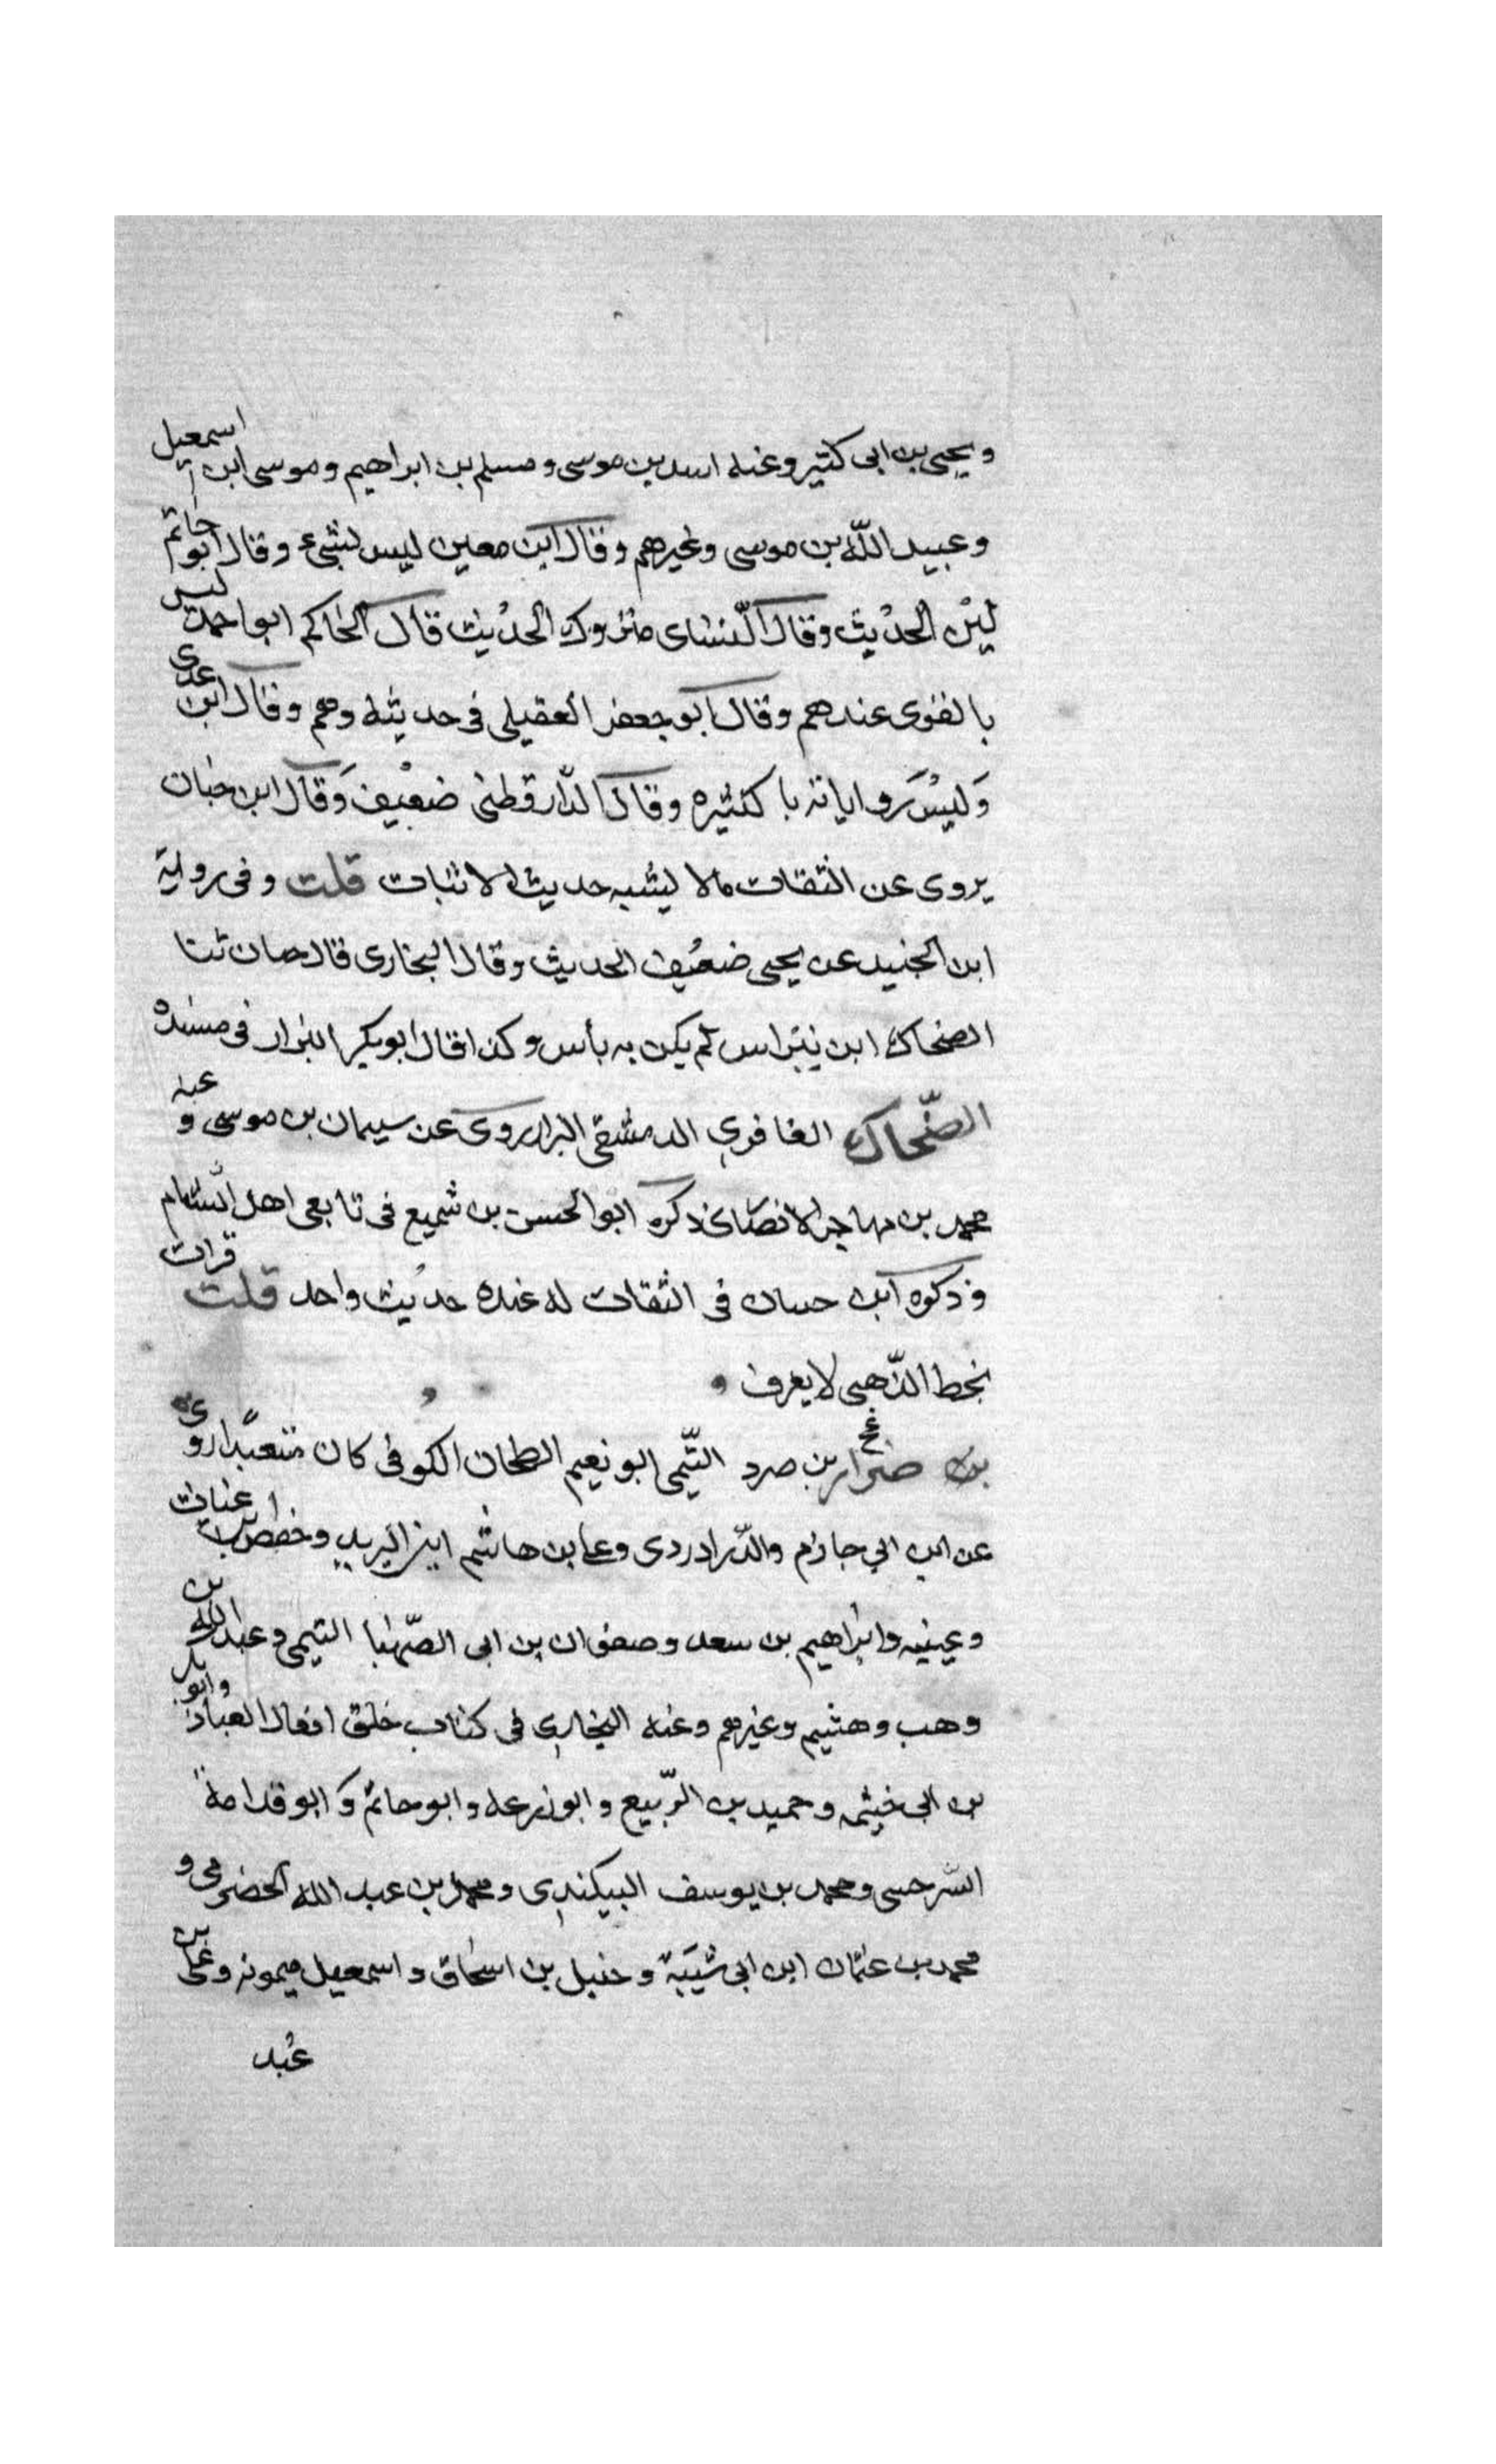 ويحيى بن ابى كثير وعنه اسد بن موسى ومسلم بن ابراهيم وموسى ابن اسمعيل
وعبيد الله بن موسى وغيرهم وقال ابن معين ليس بشىء وقال ابو حاتم
لين الحديث وقال النسائى متروك الحديث قال الحاكم ابو احمد ليس
بالقوى عندهم وقال ابو جعفر العقيلى فى حديثه وهم وقال ابن عدى
وليس رواياته با كثيره وقال الدارقطنى ضعيف وقال ابن حبان
يروى عن الثقات مالا يشبه حديث الاثبات قلت وفى رواية
ابن الجنيد عن يحيى ضعيف الحديث وقال البخارى قال حبان ثنا
الضحاك ابن نبراس لم يكن به بأس وكذا قال ابو بكر البزار فى مسنده
الضحاك المغافرى الدمشقى البزار روى عن سيمان بن موسى و عنه
محمد بن مهاجر الانصارى ذكره ابو الحسن بن شميع فى تابعى اهل الشام
وذكره ابن حبان فى الثقات له عنده حديث واحد قلت قرات
بخط الذهبى لا يعرف
عخ ضرار بن صرد التيمى ابو نعيم الطحان الكوفى كان متعبدا روى
عن ابن ابى حازم والدراوردى وعلى بن هاشم ابن البريد وحفص بن غياث
وعيينه وابراهيم بن سعد وصفوان بن ابى الصهبا التيمى وعبد الله بن
وهب وهشيم وغيرهم وعنه البخارى فى كتاب خلق افعال العباد وابو بكر
بن ابى خيثمه وحميد بن الربيع وابو زرعه وابو حاتم وابو قدامة
السرخسى ومحمد بن يوسف البيكندى ومحمد بن عبد الله الحضرمى و
محمد بن عثمان ابن ابى شيبة وحنبل بن اسحاق واسمعيل ميمونه وعلى بن
عبد